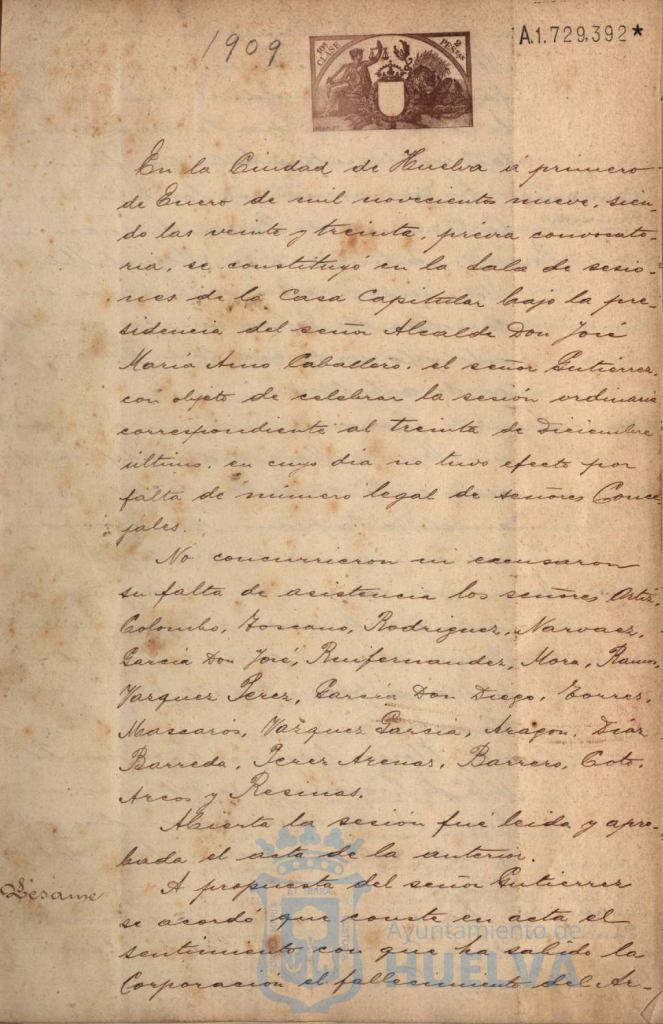 1909
10ª CLASE
2 PESETAS
A.1.729,392*
En la Ciudad de Huelva á primero
de Enero de mil novecientos nueve, sien-
do las veinte y treinta, prévia convocato-
ria, se constituyó en la Sala de sesio-
nes de la Casa Capitular bajo la pre-
sidencia del señor Alcalde Don José
María Amo Caballero, el señor Gutiérrez,
con objeto de celebrar la sesión ordinaria
correspondiente al treinta de Diciembre
último, en cuyo dia no tuvo efecto por
falta de número legal de señores Conce-
jales.
No concurrieron ni excusaron
su falta de asistencia los señores Ortiz,
Colombo, Toscano, Rodriguez, Narvaez,
García Don José, Ruifernandez, Mora, Ramos,
Vazquez Perez, García Don Diego, Torres,
Mascarós, Vazquez García, Aragon, Diaz
Barreda, Perez Arenas, Barrero, Coto,
Arcos y Resinas.
Abierta la sesión fué leida y apro-
bada el acta de la anterior.
Pésame
A propuesta del señor Gutierrez
se acordó que conste en acta el
sentimiento con que ha sabido la
Corporación el fallecimiento del Ar-
Ayuntamiento de
HUELVA